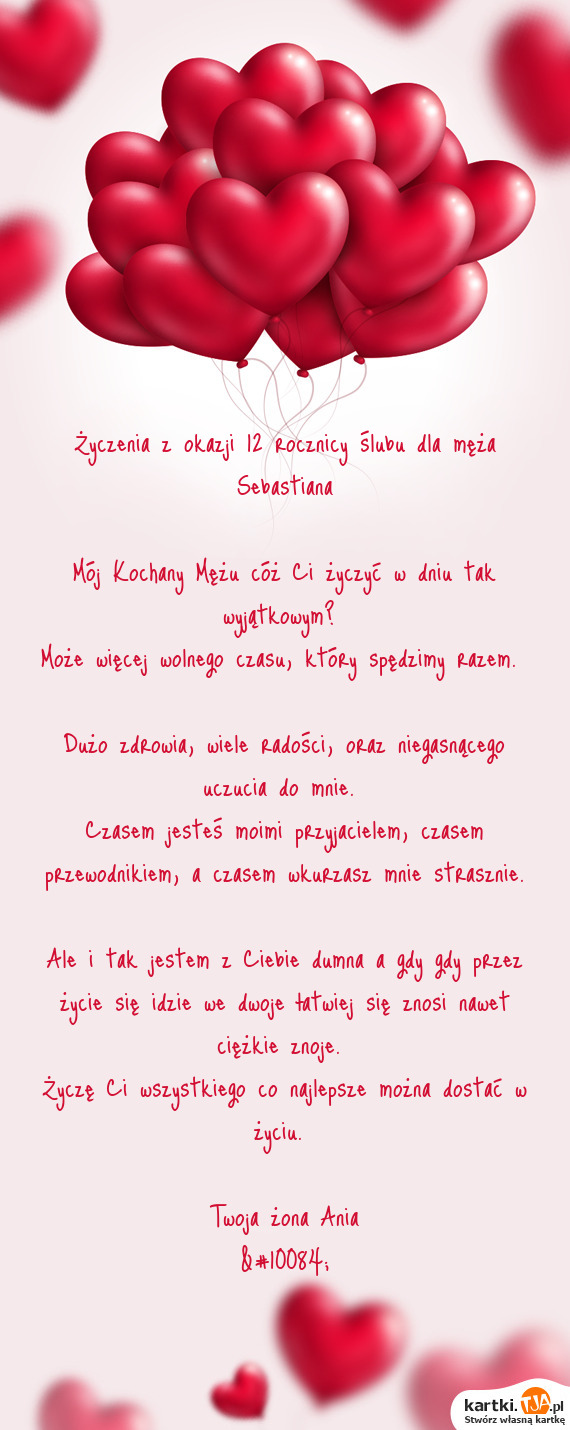 Życzenia z okazji 12 rocznicy ślubu dla męża
Sebastiana
Mój Kochany Mężu cóż Ci życzyć w dniu tak
wyjątkowym?
Może więcej wolnego czasu, który spędzimy razem.
Dużo zdrowia, wiele radości, oraz niegasnącego
uczucia do mnie.
Czasem jesteś moimi przyjacielem, czasem
przewodnikiem, a czasem wkurzasz mnie strasznie.
Ale i tak jestem z Ciebie dumna a gdy gdy przez
życie się idzie we dwoje łatwiej się znosi nawet
ciężkie znoje.
Życzę Ci wszystkiego co najlepsze można dostać w
życiu.
Twoja żona Ania
&#10084;
kartki.TJA.pl
Stwórz własną kartkę